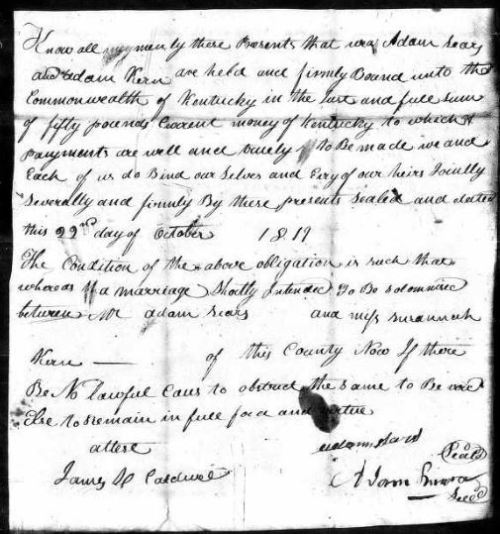 Know all men by these Presents that we Adam Sears
and Adam Kern are held and firmly Bound unto the
Commonwealth of Kentucky in the Just and full sum
of fifty pounds Current money of Kentucky to which
payments are well and truely to Be made we and
Each of us do Bind our Selves and Eery of our heirs Jointly
Severally and firmly By these presents Sealed and dated
this 22nd day of October 1811
The Condition of the above obligation is such that
whereas if a marriage Shotly Intended to Be solemnised
between Mr adam Sears and miss Susannah
Kern — of this County Now If there
Be No lawful Caus to obstruct the same to Be void
Else to remain in full force and virtue
attest
Adam Sears Seal
James H Caldwell
Adam Seal